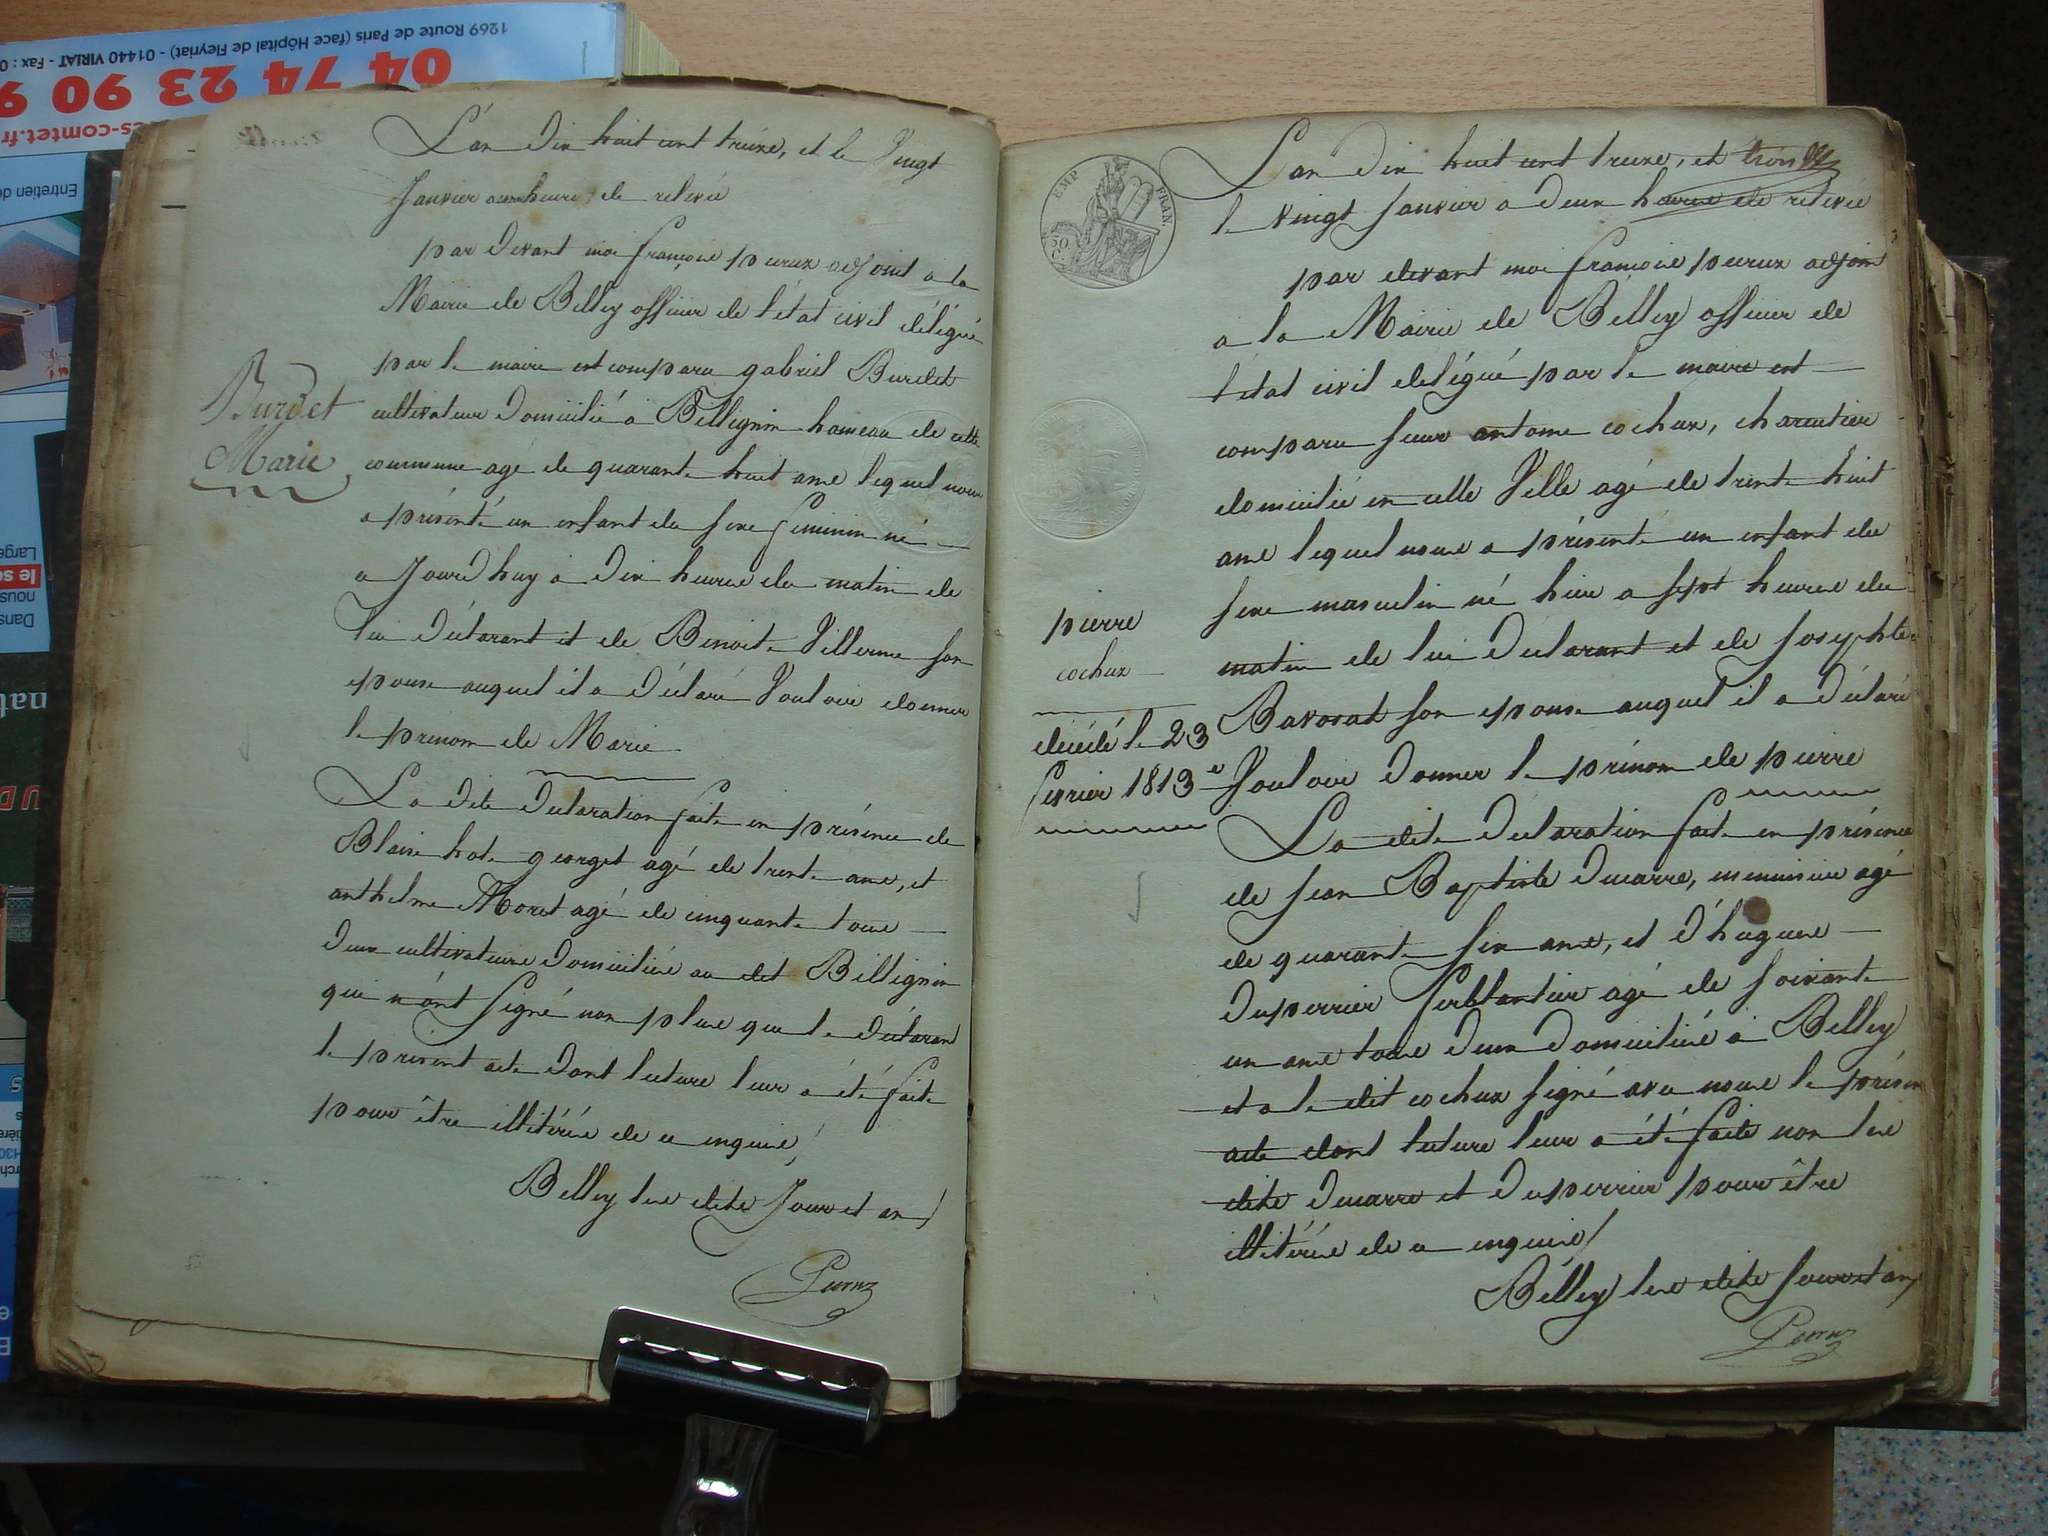 1269 Route de Paris (face Hôpital de Fleyriat) - 01440 VIRIAT - Fax : 0
04 74 23 90 9
es-comtet.fr
Entretien de
Large
le s
nous
Dans
L'an dix huit cent treize, et le Vingt
Janvier a une heure de relevée
par devant moi françois peruz adjoint a la
Mairie de Belley officier de l'état civil délégué
par le maire est comparu gabriel Burdet
cultivateur Domicilié a Billignin hameau de cette
commune agé de quarante huit ans lequel nous
a présenté un enfant du sexe feminin né
aJourdhuy a dix heures du matin de
lui déclarant et de Benoite Villerme son
epouse auquel il a déclaré Vouloir donner
le prenom de Marie
Burdet
Marie
La dite declaration faite en présence de
Blaise hote georget agé de trente ans, et
anthelme Moret agé de cinquante tous
deux cultivateurs domiciliés au dit Billignin
qui n'ont signé non plus que le déclarant
le présent acte dont lecture leur a été faite
pour être illitérés de ce enquis,
Belley les dits Jour et an
Peruz
EMP. FRAN.
50
C.
L'an dix huit cent treize, et trois
le vingt Janvier a deux heures de relevée
par devant moi françois peruz adjoint
a la Mairie de Belley officier de
l'état civil delégué par le maire est
comparu sieur antoine cochux, charcutier
domicilié en cette Ville agé de trente huit
ans lequel nous a présenté un enfant du
sexe masculin né hier a sept heures du
matin de lui Déclarant et de Josephte
Bavosat son epouse auquel il a déclaré
Vouloir donner le prénom de pierre
pierre
cochux
décédé le 23
fevrier 1813
La dite déclaration faite en présence
de Jean Baptiste Ducarre, menuisier agé
de quarante six ans, et d'hugues
Duperrier ferblantier agé de soixante
un ans tous deux domiciliés a Belley
et a le dit cochux signé avec nous le présent
acte dont lecture leur a été faite non les
dits Ducarre et Duperrier pour être
illitérés de ce enquis
Belley les dits Jour et an
Peruz